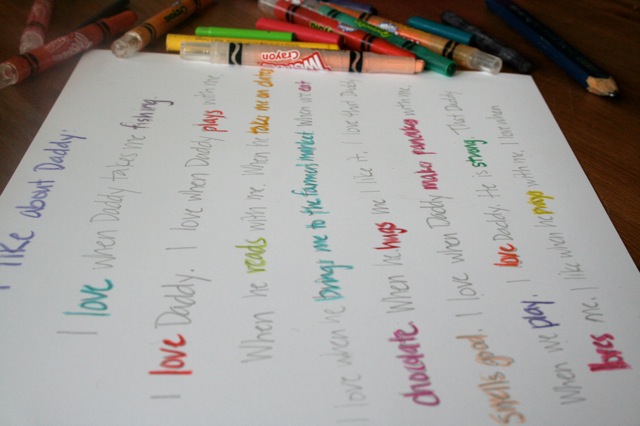 I like about Daddy:
I love when Daddy takes me fishing.
I love Daddy. I love when Daddy plays with me
When he reads with me. When he take me on dates
I love when he brings me to the farmers market when we eat
chocolate. When he hugs me I like it. I love that Daddy
smells good. I love when Daddy makes pancakes with me.
When we play. I love Daddy. He is strong. That Daddy
loves me. I like when he prays with me. I love when
Crayon